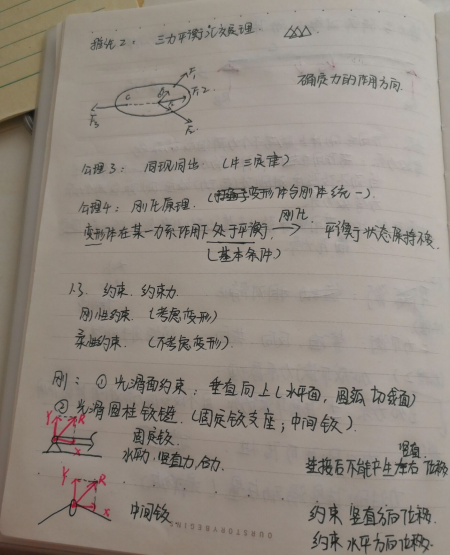 推论2: 三力平衡汇交定理.
F1
确定力的作用方向.
A
C
F12
F3
F2
公理3: 同现同出 (牛三定律)
公理4: 刚化原理. 变形体与刚体统一.)
变形体在某一力系作用下处于平衡, 刚化 平衡状态保持不变.
(基本条件)
1.3. 约束. 约束力
刚性约束. (考虑变形)
柔性约束. (不考虑变形)
刚: ① 光滑面约束: 垂直向上(水平面, 圆弧切线面)
② 光滑圆柱铰链. (固定铰支座; 中间铰).
Y R
固定铰.
X
水平力. 竖直力. 合力.
竖直
连接后不能产生左右位移
Y R
X
中间铰
约束竖直方向位移.
约束水平方向位移.
OURSTORYBEGINS